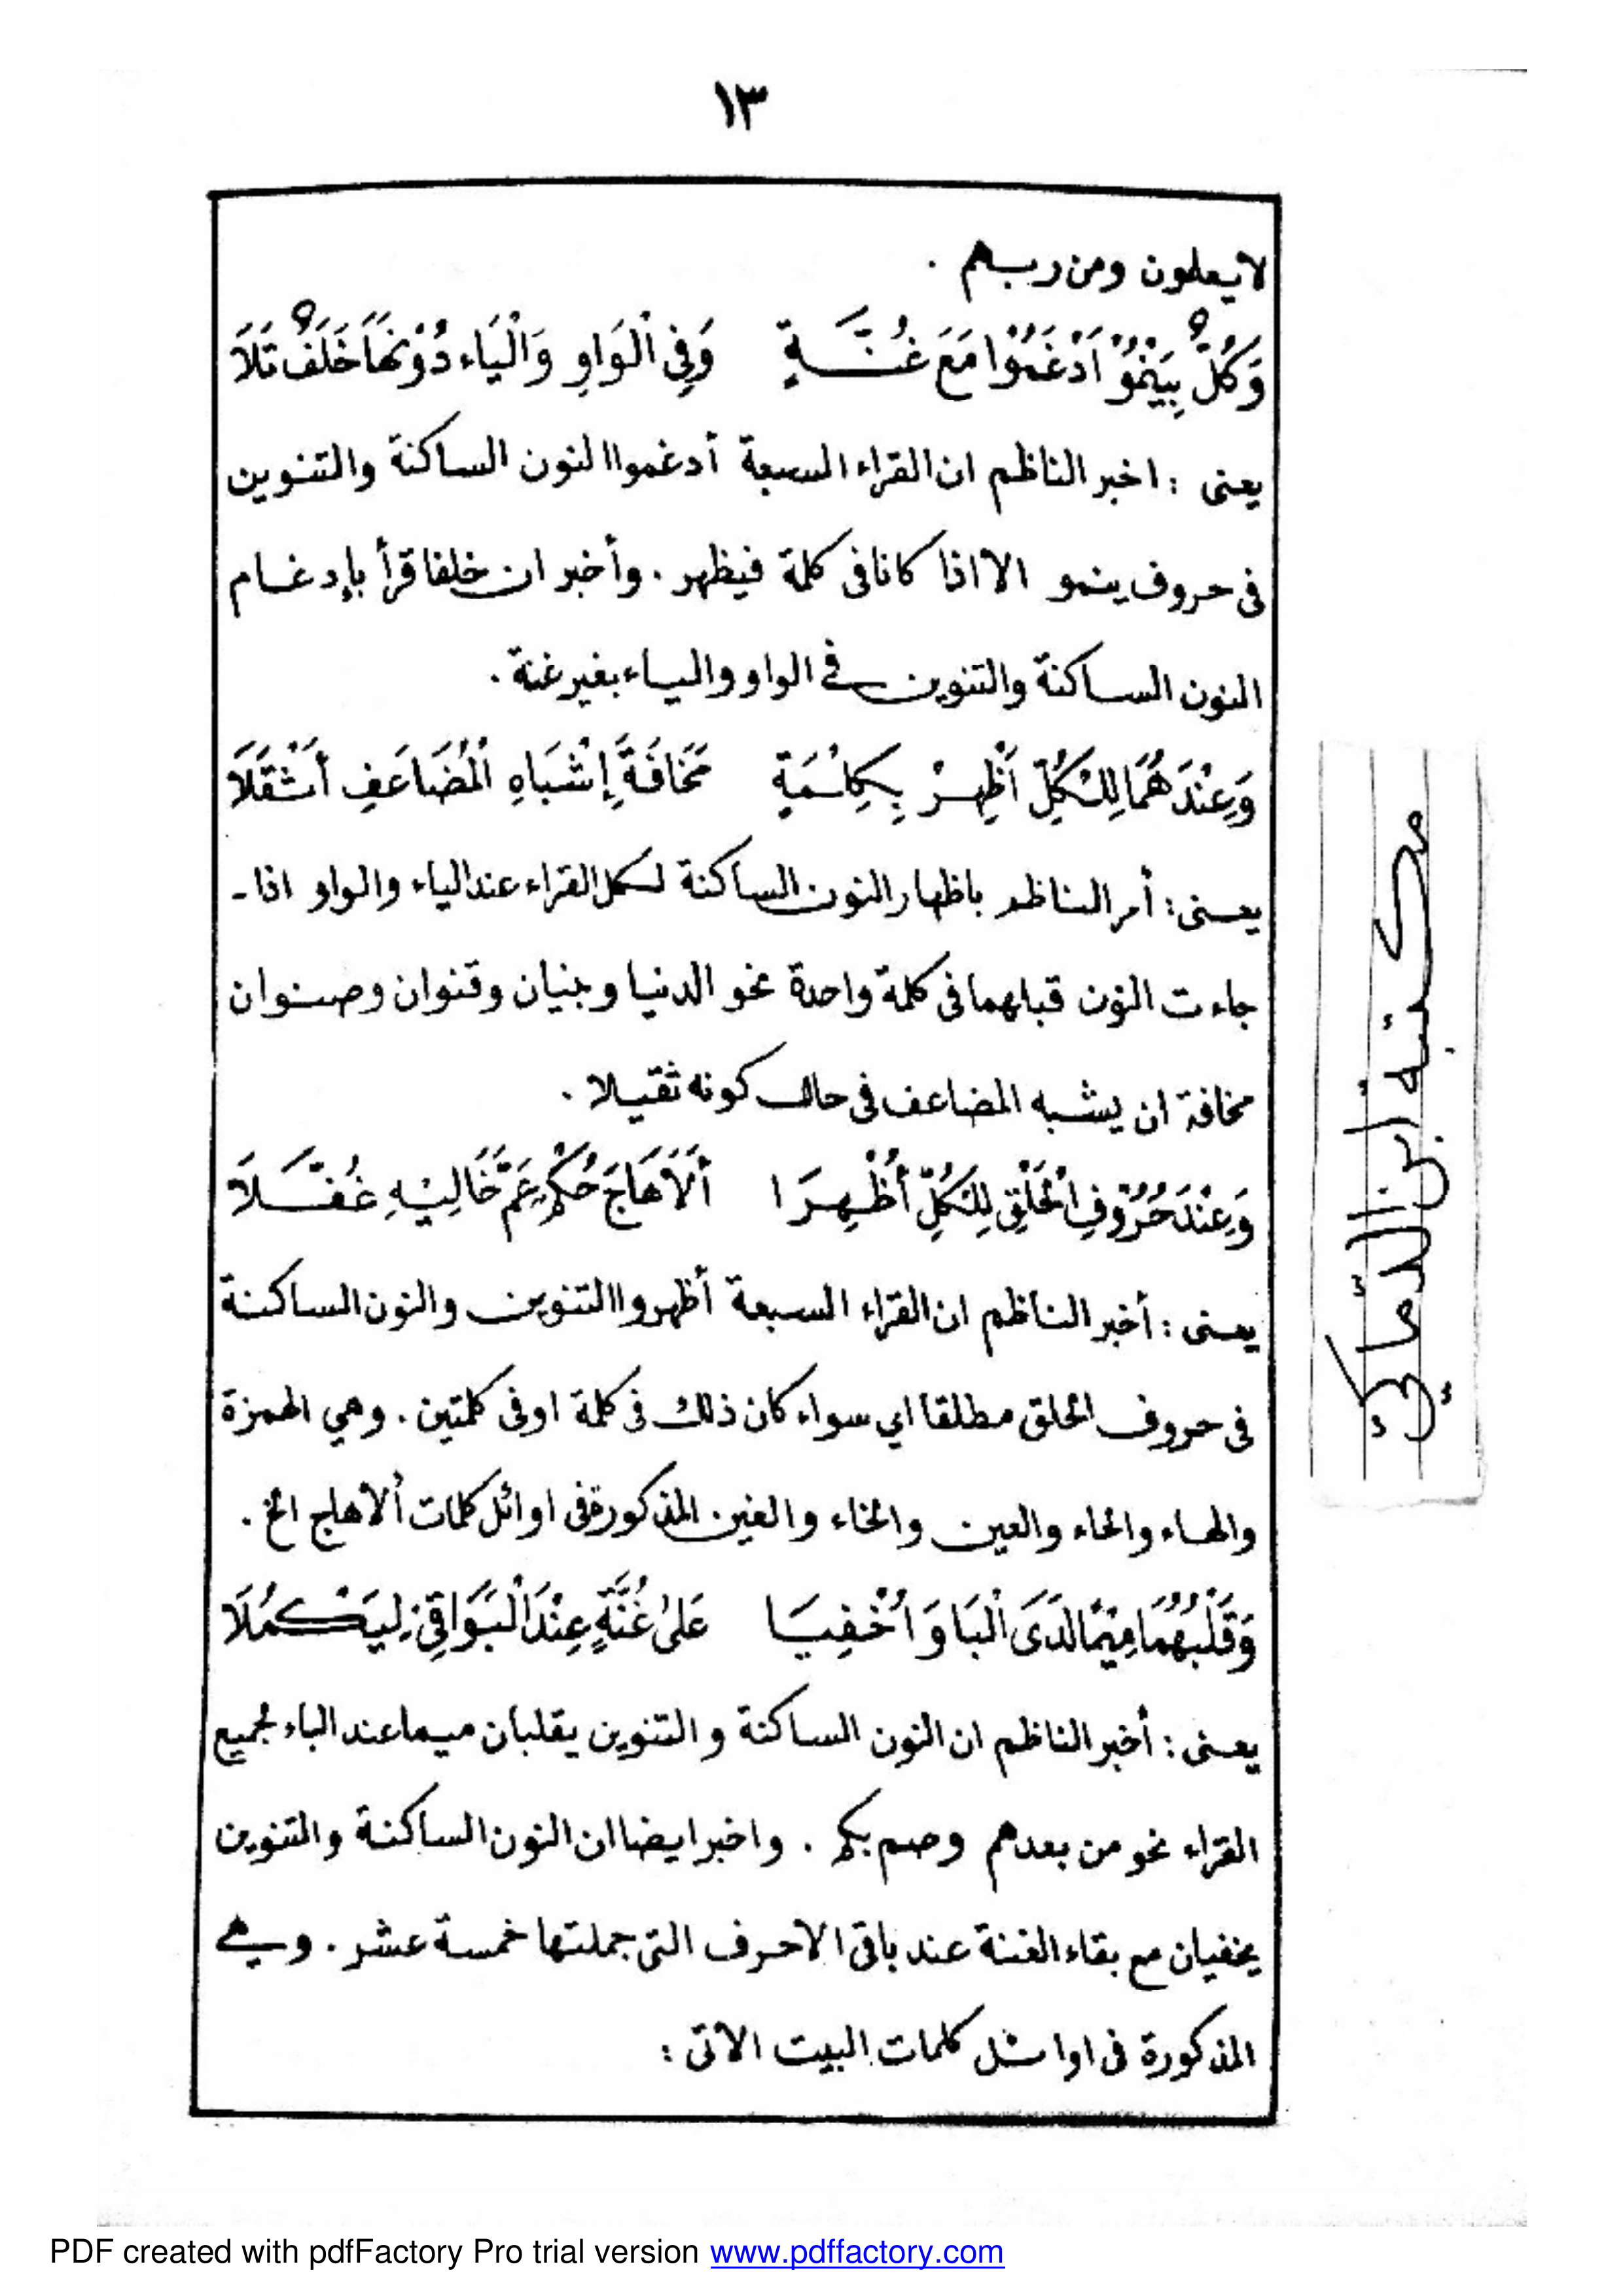 ١٣
لا يعلمون ومن ربهم .
وَكُلٌّ بِيَنْمُوْ اَدْغَمُوْا مَعَ غُنَّةٍ    وَفِى الْوَاوِ وَالْيَاء دُوْنَهَا خَلَفٌ تَلَا
يعنى : اخبر الناظم ان القراء السبعة أدغموا النون الساكنة والتنوين
فى حروف ينمو الا اذا كانا فى كلمة فيظهر . وأخبر ان خلفا قرأ بإدغام
النون الساكنة والتنوين في الواو والياء بغير غنة .
وَعِنْدَهُمَا لِلْكُلِّ اَظْهِرْ بِكِلْمَةٍ    مَخَافَةَ إِشْبَاهِ الْمُضَاعَفِ أَثْقَلَا
يعنى : أمر الناظم باظهار النون الساكنة لكل القراء عند الياء والواو اذا -
جاءت النون قبلهما فى كلمة واحدة نحو الدنيا وبنيان وقنوان وصنوان
مخافة ان يشبه المضاعف فى حال كونه ثقيلا .
وَعِنْدَ حُرُوْفِ الْحَلْقِ لِلْكُلِّ أُظْهِرَا    أَلَا هَاجَ حُكْمٌ عَمَّ خَالِيْهِ غُفَّلَا
يعنى : أخبر الناظم ان القراء السبعة أظهروا التنوين والنون الساكنة
فى حروف الحلق مطلقا اي سواء كان ذلك فى كلمة او فى كلمتين . وهي الهمزة
والهاء والحاء والعين والخاء والغين المذكورة فى اوائل كلمات ألا هاج الخ .
وَقَلْبُهُمَا مِيْمًا لَدَى الْبَا وَأُخْفِيَا    عَلَى غُنَّةٍ عِنْدَ الْبَوَاقِيْ لِيَكْمُلَا
يعنى : أخبر الناظم ان النون الساكنة والتنوين يقلبان ميما عند الباء لجميع
القراء نحو من بعدهم وصم بكم . واخبر ايضا ان النون الساكنة والتنوين
يخفيان مع بقاء الغنة عند باقى الاحرف التى جملتها خمسة عشر . وهي
المذكورة فى اوائل كلمات البيت الاتى :
مكتبة ابن
PDF created with pdfFactory Pro trial version www.pdffactory.com